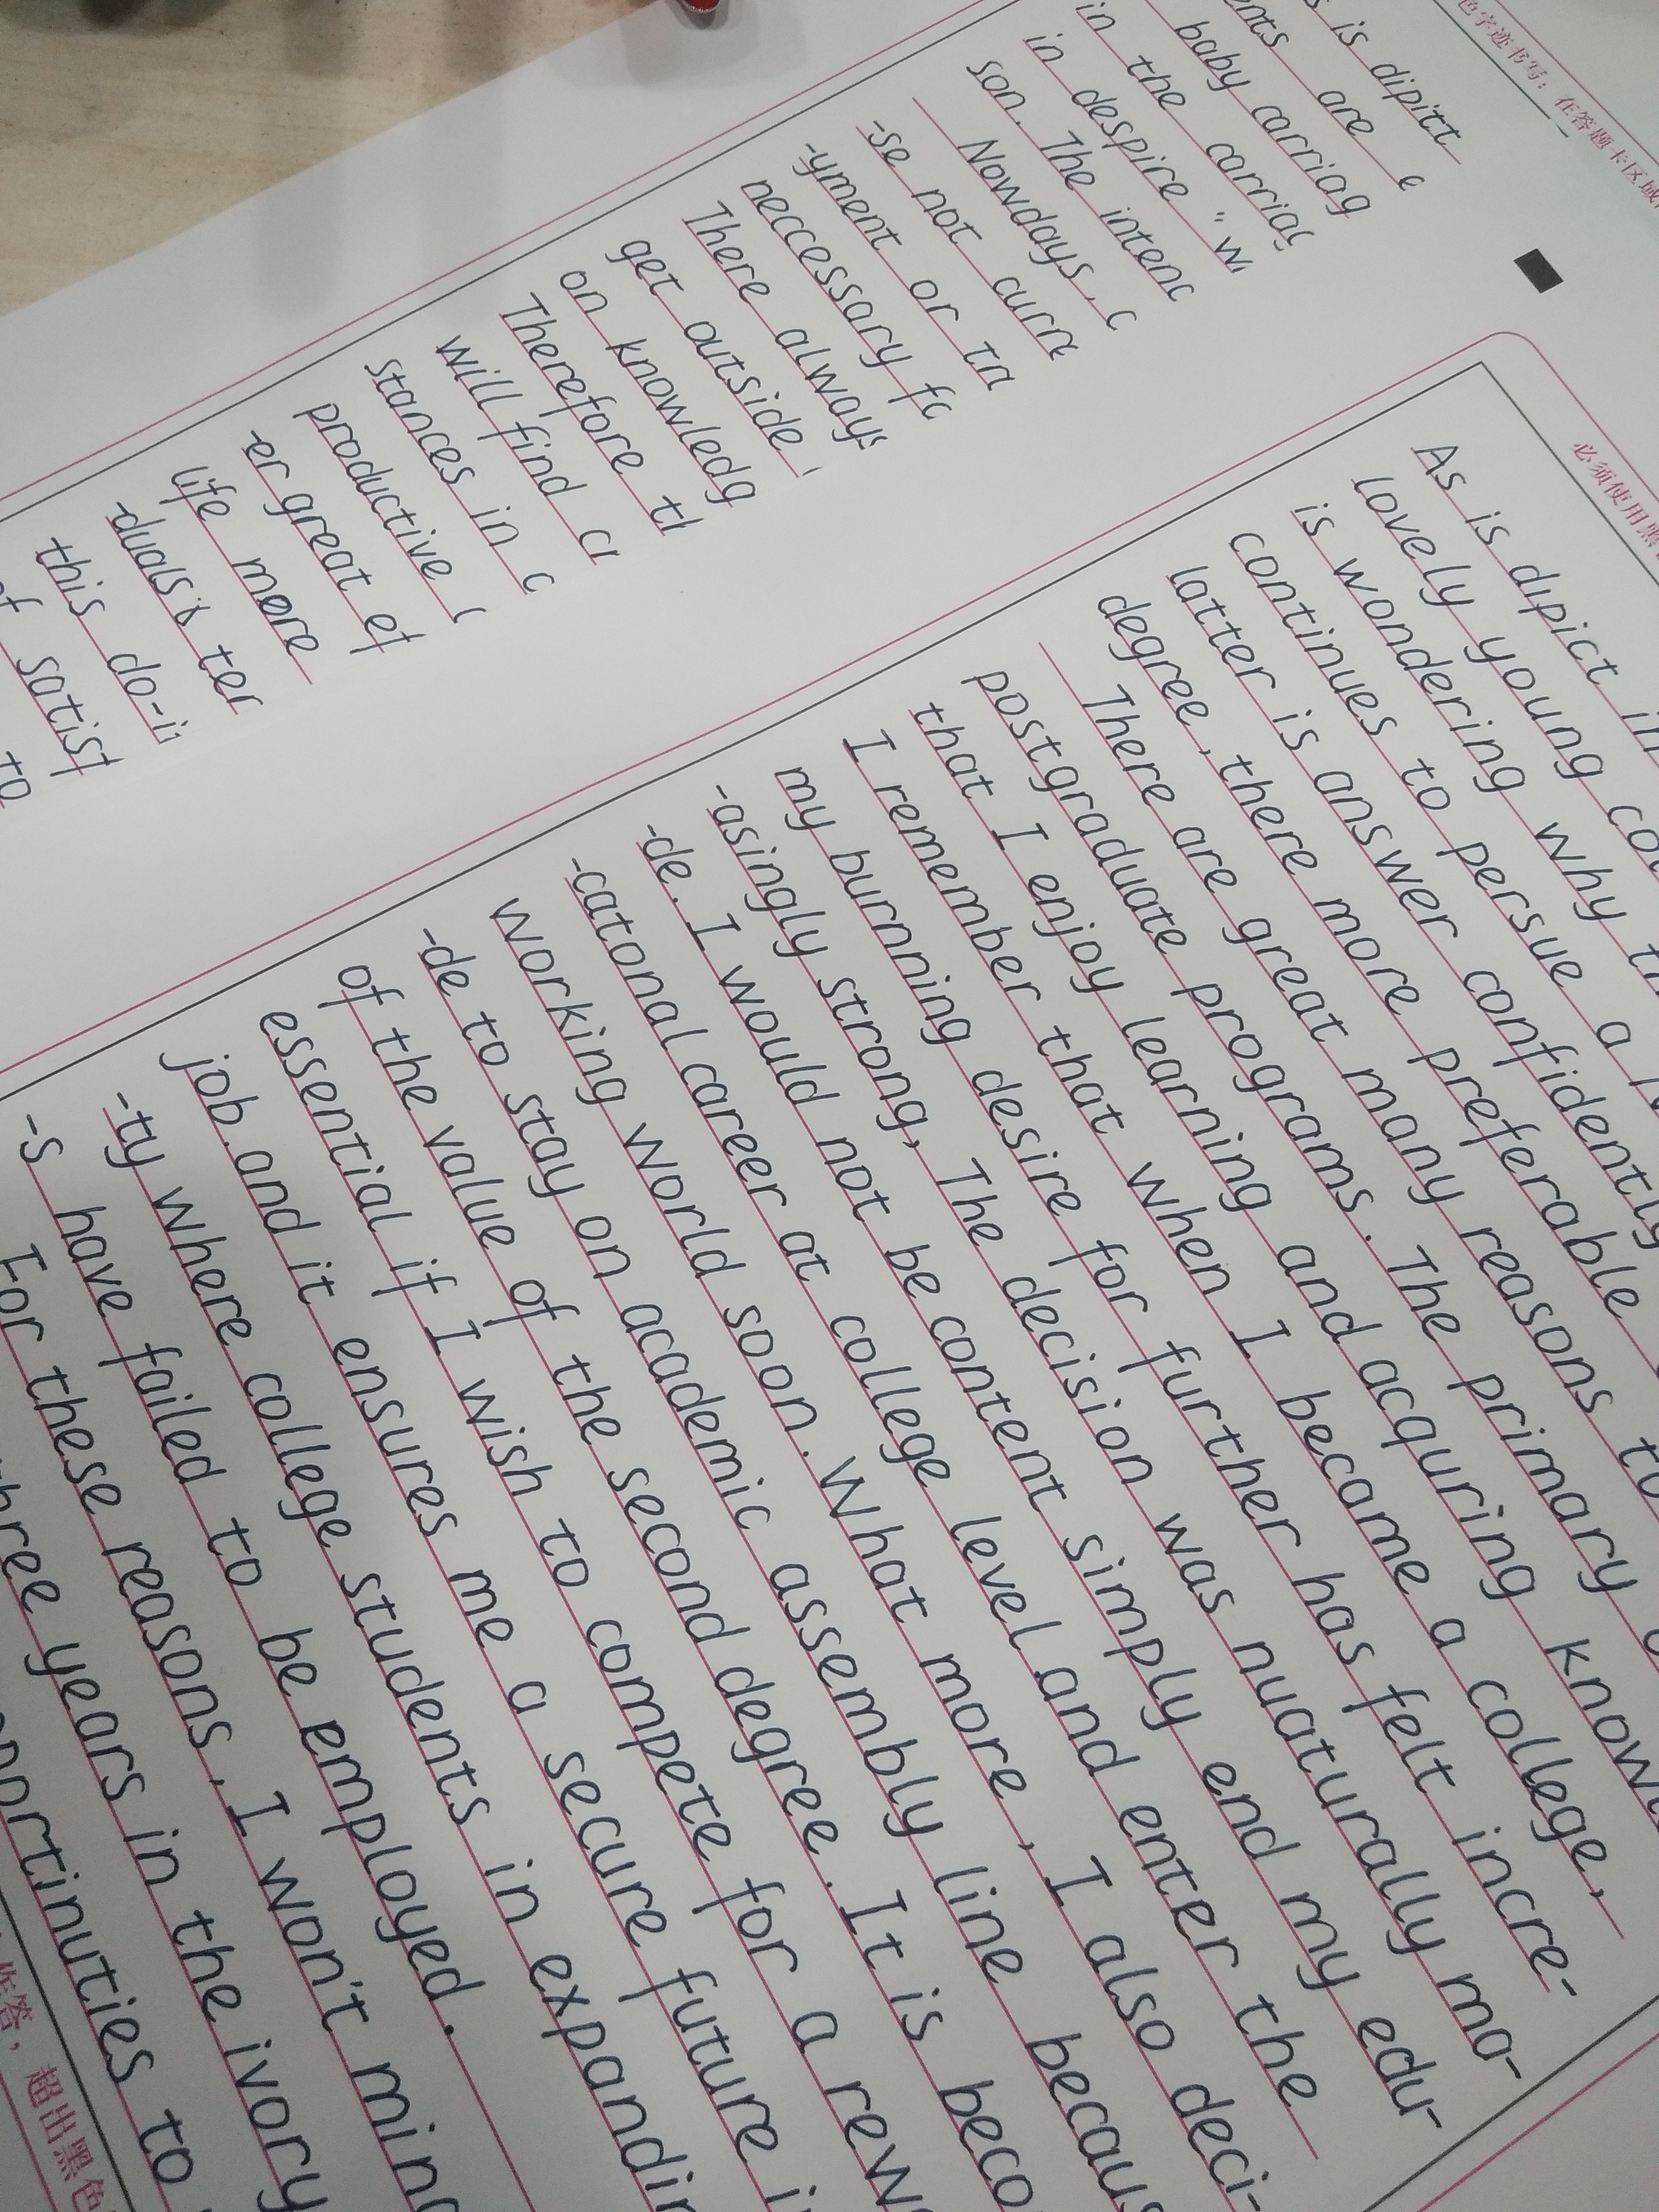 色字迹书写：在答题卡区域
is dipitt
are
baby carriag
in the carriag
in despire "
son. The
Nowdays,
-se not
-yment or
neccessary
There always
get outside
on knowledg
Therefore
will find
stances in
productive
-er great
life more
-duals
this do-
satisf
to
必须使用黑
As is dipict
lovely young
is wondering why
continues to persue a
latter is answer confidently
degree, there more preferable
There are great many reasons to
postgraduate programs. The primary
that I enjoy learning and acquring know
I remember that when I became a college,
my burnning desire for further has felt incre-
-asingly strong, The decision was nuaturally ma-
-de. I would not be content simply end my edu-
-catonal career at college level and enter the
working world soon. What more, I also deci-
-de to stay on academic assembly line becaus
of the value of the second degree. It is beco
essential if I wish to compete for a rew
job. and it ensures me a secure future i
-ty where college students in expandin
-s have failed to be employed.
For these reasons, I won't min
three years in the ivory
to
作答，超出黑色